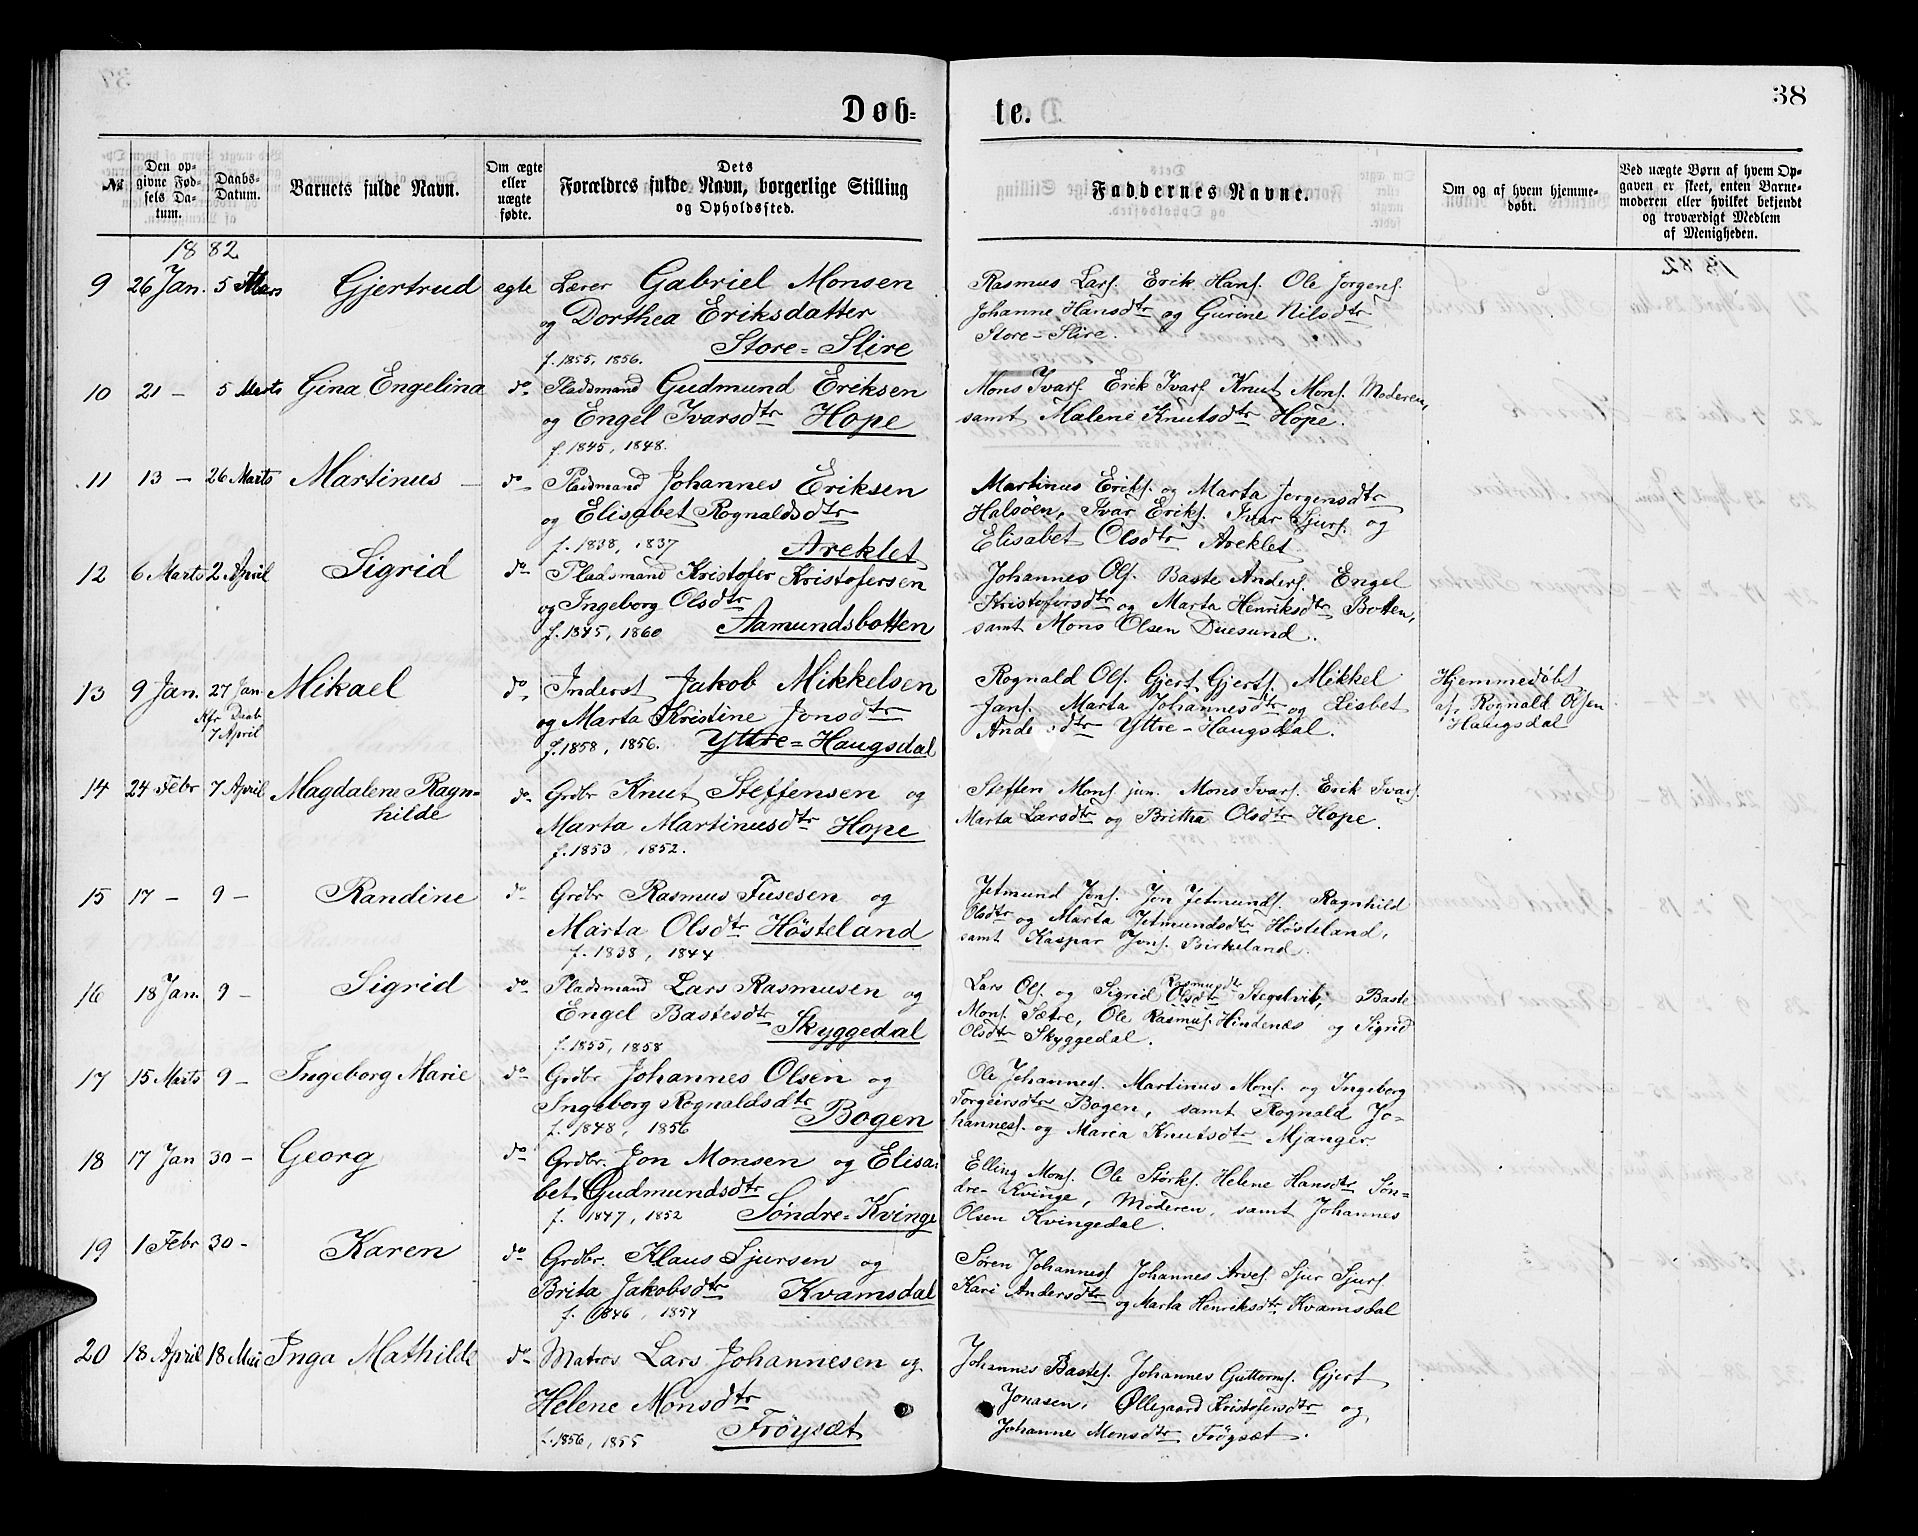 Døb=
te.
38
№
Den op-
givne Fød-
sels Da-
tum.
Daabs-
Datum.
Barnets fulde Navn.
Om ægte
eller
uægte
fødte.
Dets
Forældres fulde Navn, borgerlige Stilling
og Opholdssted.
Faddernes Navne.
Om og af hvem hjemme-
døbt.
Ved uægte Børn af hvem Op-
gaven er skeet, enten Barne-
moderen eller hvilket bekjendt
og troværdigt Medlem
af Menigheden.
1882
9 26 Jan. 5 Mars Gjertrud ægte Lærer Gabriel Monsen
og Dorthea Eriksdatter
f. 1855, 1856. Store=Slire
Rasmus Lars. Erik Hans. Ole Jørgens.
Johanne Hansdtr og Gurine Nilsdtr
Store-Slire.
10 21 - 5 Marts Gina Engelina do Pladsmand Gudmund Eriksen
og Engel Ivarsdtr Hope
f. 1845, 1848.
Mons Ivars. Erik Ivars. Knut Mons. Moderen,
samt Malene Knutsdtr Hope.
11 13 - 26 Marts Martinus - do Pladsmand Johannes Eriksen
og Elisabet Rognaldsdtr
f. 1838, 1837 Areklet
Martinus Eriks. og Marta Jørgensdtr
Halsøen, Ivar Eriks. Ivar Sjurs. og
Elisabet Olsdtr Areklet.
12 6 Marts 2 April Sigrid do Pladsmand Kristofer Kristofersen
og Ingeborg Olsdtr
f. 1845, 1860 Aamundsbotten
Johannes Ols. Baste Anders. Engel
Kristofersdtr og Marta Henriksdtr Botten,
samt Mons Olsen Duesund.
13 9 Jan. 27 Jan Mikael do Inderst Jakob Mikkelsen
Kfr Daab
7 April
og Marta Kristine Jonsdtr
f. 1858, 1856. Yttre=Haugsdal
Rognald Ols. Gjert Gjerts. Mikkel
Jans. Marta Johannesdtr og Lisbet
Andersdtr Yttre-Haugsdal.
Hjemmedøbt
af Rognald Olsen
Haugsdal
14 24 Febr 7 April Magdalene Ragn=
hilde
do Grdbr Knut Steffensen og
Marta Martinusdtr Hope
f. 1853, 1852.
Steffen Mons. jun. Mons Ivars. Erik Ivars.
Marta Larsdtr og Britha Olsdtr Hope.
15 17 - 9 - Randine do Grdbr Rasmus Fusesen og
Marta Olsdtr Høsteland
f. 1838, 1844
Jetmund Jons. Jon Jetmunds. Ragnhild
Olsdtr og Marta Jetmundsdtr Høsteland,
samt Kaspar Jons. Birkeland.
16 18 Jan. 9 - Sigrid do Pladsmand Lars Rasmusen og
Engel Bastesdtr
f. 1855, 1858 Skyggedal
Rasmusdtr
Lars Ols. og Sigrid Olsdtr Stegelvik, Baste
Mons. Sætre, Ole Rasmus. Hindenæs og Sigrid
Olsdtr Skyggedal.
17 15 Marts 9 - Ingeborg Marie do Grdbr Johannes Olsen og
Ingeborg Rognaldsdtr
f. 1848, 1856 Bogen
Ole Johannes. Martinus Mons. og Ingeborg
Torgeirsdtr Bogen, samt Rognald Jo-
hannes. og Maria Knutsdtr Mjanger.
18 17 Jan 30 - Georg do Grdbr. Jon Monsen og Elisa-
bet Gudmundsdtr
f. 1847, 1852 Søndre=Kvinge
Elling Mons. Ole Størks. Helene Hansdtr Søn=
dre-Kvinge, Moderen, samt Johannes
Olsen Kvingedal.
19 1 Febr 30 - Karen do Grdbr. Klaus Sjursen og
Brita Jakobsdtr Kvamsdal
f. 1846, 1854
Søren Johannes. Johannes Arves. Sjur Sjurs.
Kari Andersdtr og Marta Henriksdtr Kvamsdal
20 18 April 18 Mai Inga Mathilde do Matros Lars Johannesen og
Helene Monsdtr
f. 1856, 1855 Frøysæt
Johannes Bastes. Johannes Guttorms. Gjert
Jonasen, Øllegaard Kristofersdtr og
Johanne Monsdtr Frøysæt.